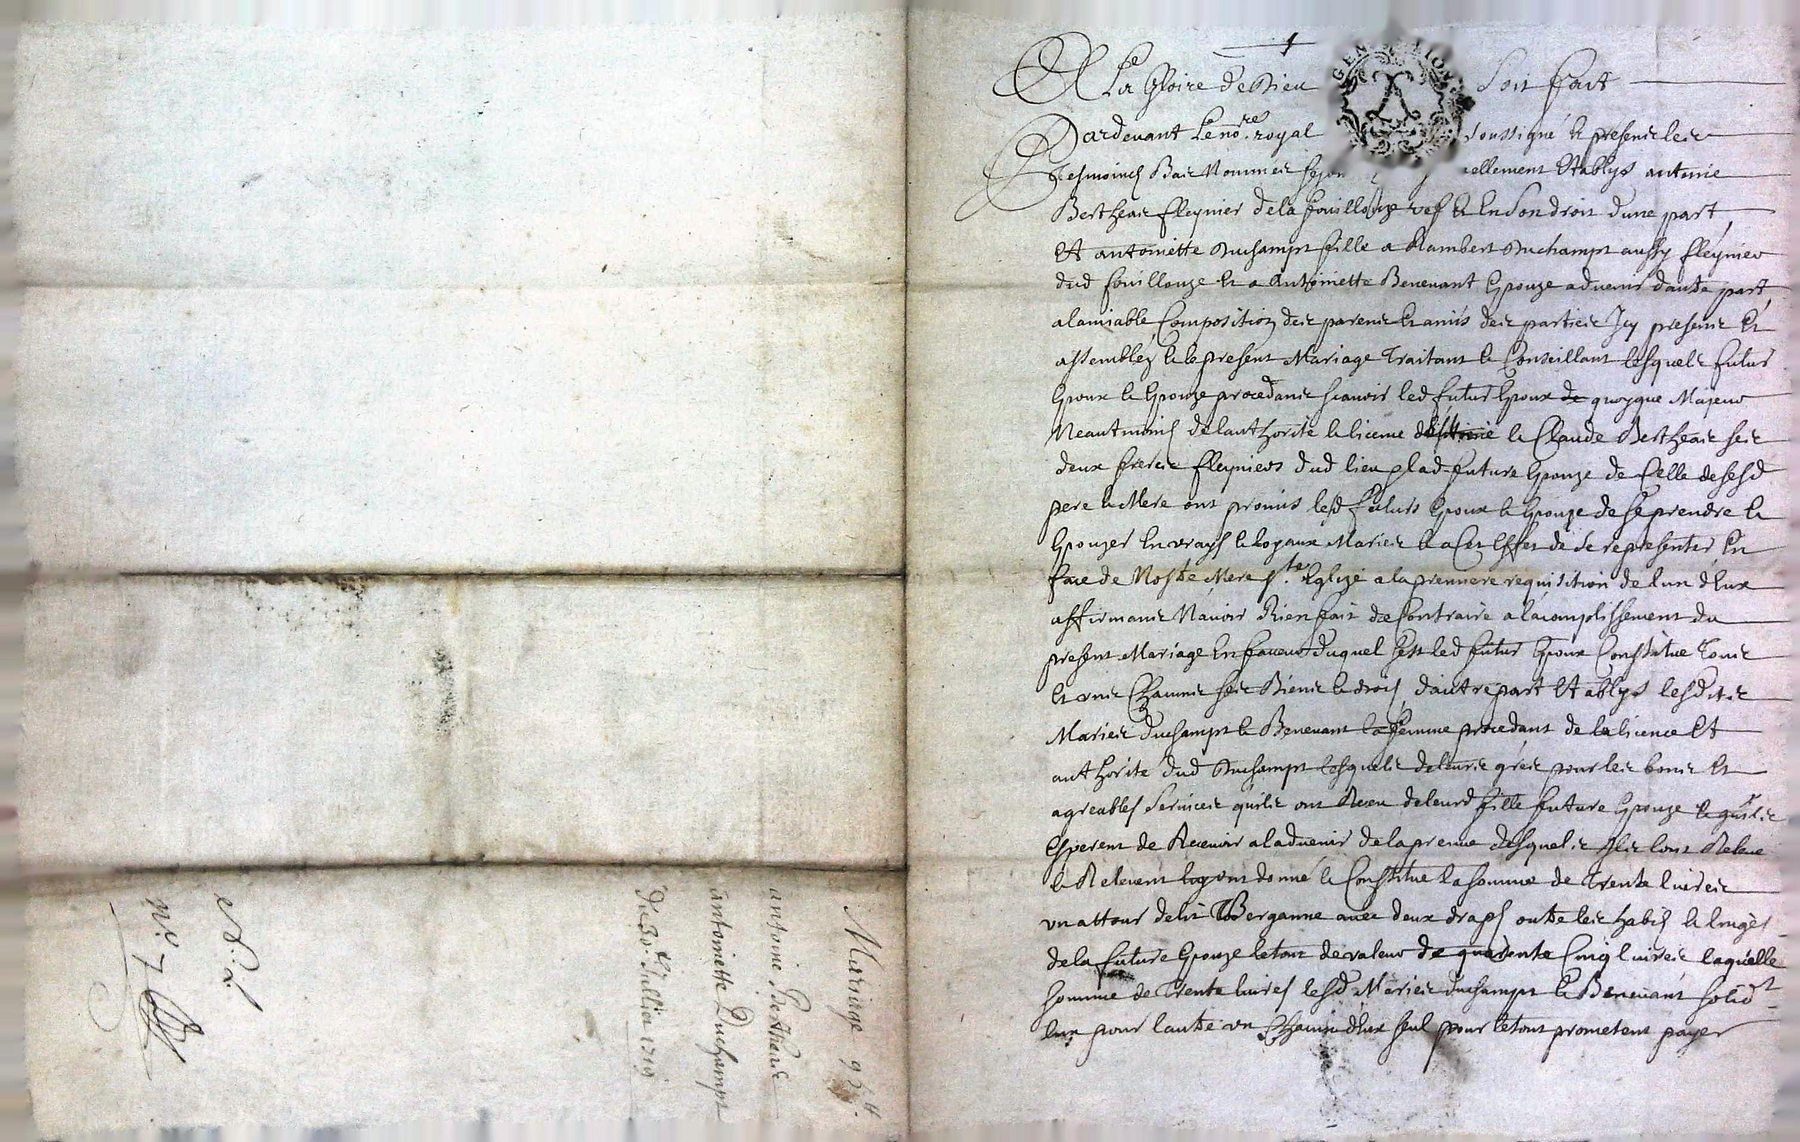 Mariage
antoine Bertheas
antoinette Duchampt
du 30e Juillet 1719
N.o 7
A La Gloire de Dieu Soit fait
GEN LION
Pardevant Le nore royal soussigné & presents les
tesmoins Bas Nommes ellement Etablys antoine
Bertheas fleynier de la fouillouze vef & En Son droit dune part
Et antoinette Duchampt fille a Rambert Duchampt aussy fleynier
dud fouillouze & a Antoinette Benevant Epouze advenir dautre part
alamiable Composition des parents & amis des parties Icy presents Et
assemblez & le present Mariage Traitant & Conseillant lesquels futur
Epoux & Epouze procedants scavoir led futur Epoux de quoyque Majeur
Neantmoins de lauthorite & licence & Claude Bertheas ses
deux freres fleyniers dud lieu & lad future Epouze de Celle de sesd
pere & Mere ont promis lesd futurs Epoux & Epouze de se prendre &
Epouzer En vrays & Loyaux Maries & a Cet Effet de se representer En
face de Nostre Mere Ste Eglize a la premiere requisition de lun dEux
affirmants Navoir Rien fait de Contraire a lacomplissement du
present Mariage En faveur duquel sest led futur Epoux Constitue Tous
Et uns Chacuns ses Biens & droits dautre part Etablys lesdites
Maries Duchampt & Benevant la femme procedant de la licence Et
authorite dud Duchampt lesquels de leurs grés pour les bons Et
agreables Services quils ont Receu de leurd fille future Epouze & quils
Esperent de Recevoir a ladvenir de la preuve desquels Ils lont Releve
& Relevent luy ont donné & Constitue la somme de Trente livres
un attour de lit Bergamme avec deux draps outre les habits & linges
de la future Epouze le tout de valeur de quarente Cinq livres laquelle
somme de Trente livres lesd Maries Duchampt & Benevant solidt
lun pour lautre un Chacun dEux seul pour le tout prometent payer